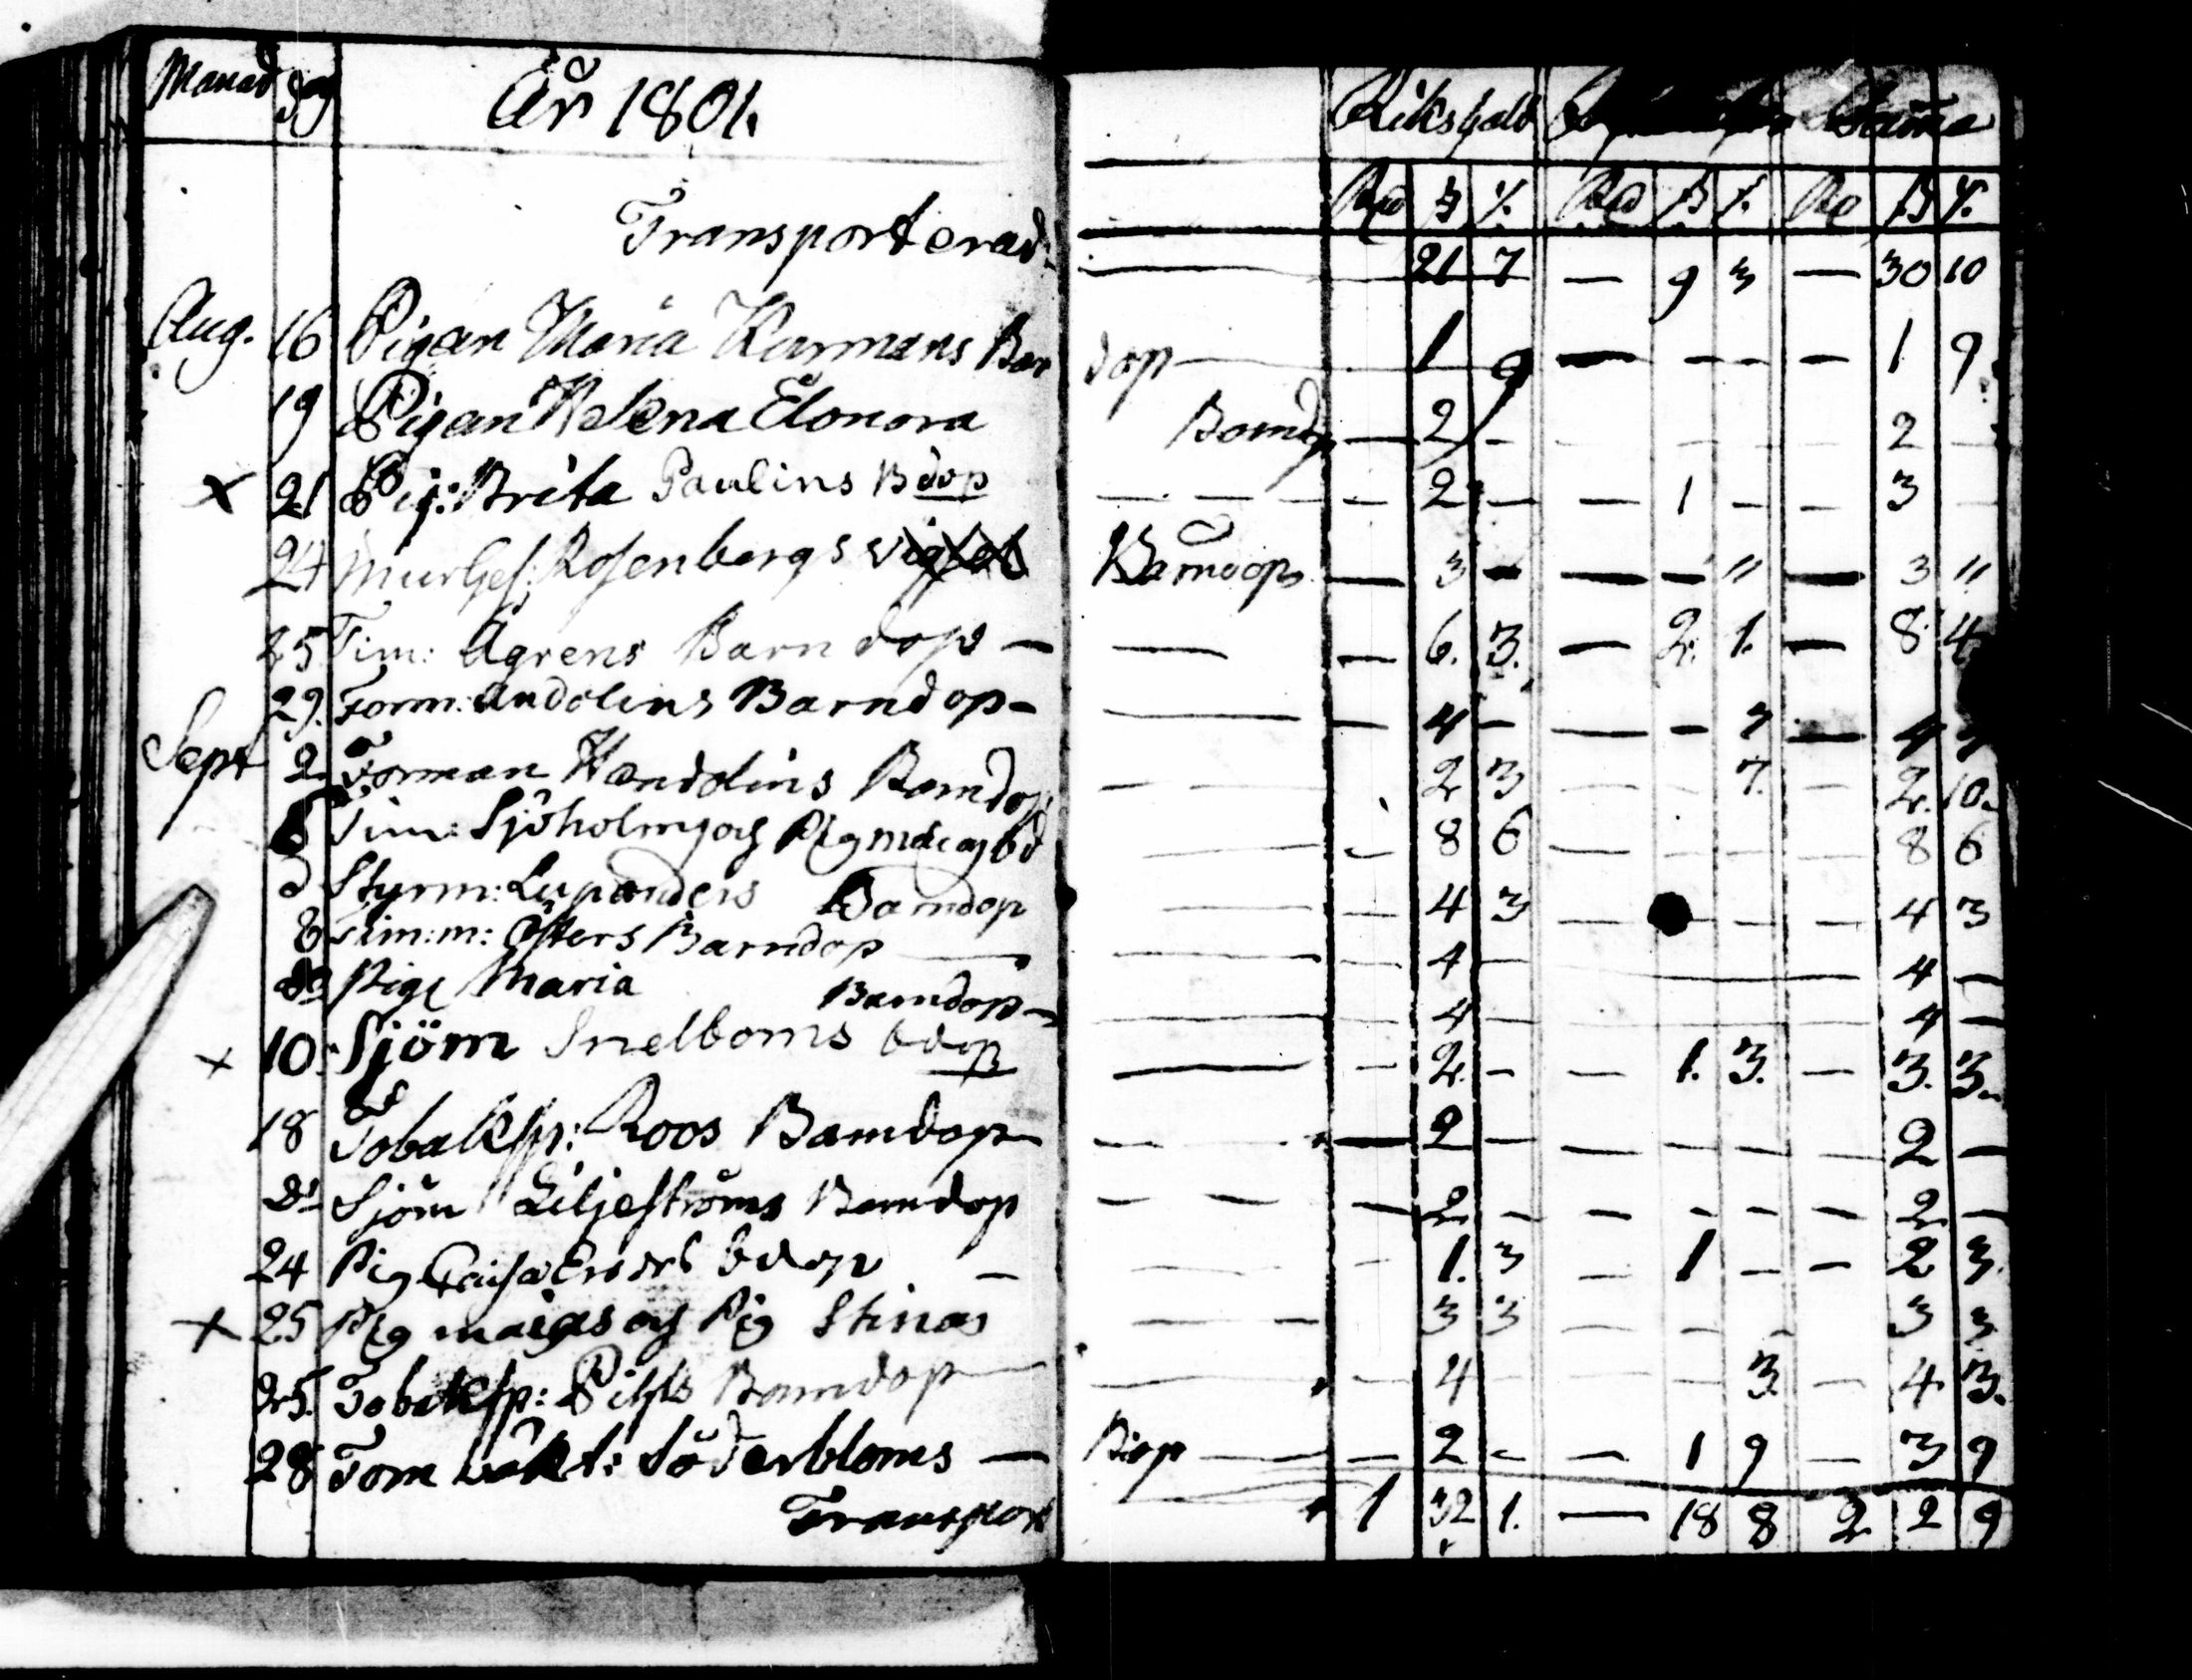 Manad dag År 1801. Riksgäld Summa
Rd ß /. Rd ß /. Rd ß /.
Transporterad. — 21 7 — 9 3 — 30 10
Aug. 16 Pigan Maria Karmans Barndop — 1 9 — — — — 1 9
19 Pigan Helena Elonora Barndop — 2 — — — — 2 —
x 21 Pig: Brita Paulins Bdop — — 2 — — 1 — — 3
24 Murges: Rosenbergs Barndop — 3 — — — " — 3 "
25 Tim: Ågrens Barndop — — — 6. 3. — 2. 1. — 8 4
29. Form: Andolins Barndop — — — 4 — — — 7 — 4 7
Sept 2. Forman Handolins Barndop — — 2 3 — — 7. — 2. 10.
5 Tim: Sjöholms och Pig 8 6 — — — — 8 6
d Styrm: Barndop — — 4 3 — — — — 4 3
8 Tim:m: Östers Barndop — — — 4 — — 4 —
do Pig Maria Barndop — — — 4 — 4 —
x 10. Sjöm Snelboms bdop — — 2. — — 1. 3. — 3. 3.
18 Tobaksp: Roos Barndop — — 2 — — — — — 2 —
do Sjöm Liljeströms Barndop — — — 2 — — — — — 2 —
24 Pig Cajsa bdop — — — 1. 3 — 1 — — 2 3.
x 25 Pig majas och Pig Stinas — — 3 3 — — — 3 3
25. Tobaksp: Barndop — — 4 — — 3. — 4 3.
28 Torn väkt: Söderbloms — Bdop — — 2 — — 1 9 — 3 9
Transport 1 32 1. — 18 8 2 2 9